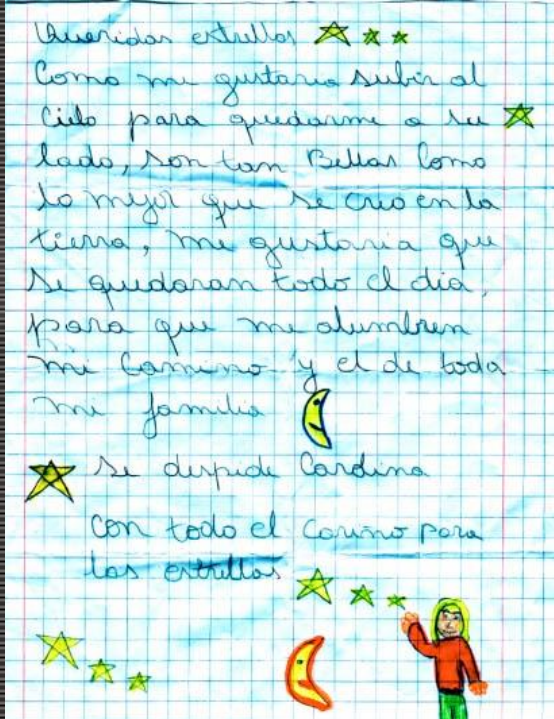 Queridas estrellas
Como me gustaria subir al
Cielo para quedarme a su
lado, son tan Bellas Como
lo mejor que se creo en la
tierra, me gustaria que
se quedaran todo el dia,
para que me alumbren
mi Camino y el de toda
mi familia
se despide Cardina
con todo el Cariño para
las estrellas